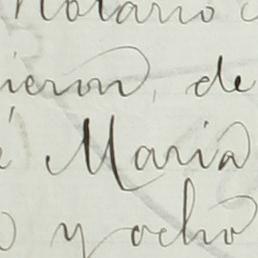 Notario
ieron, de
é Maria
o y ocho